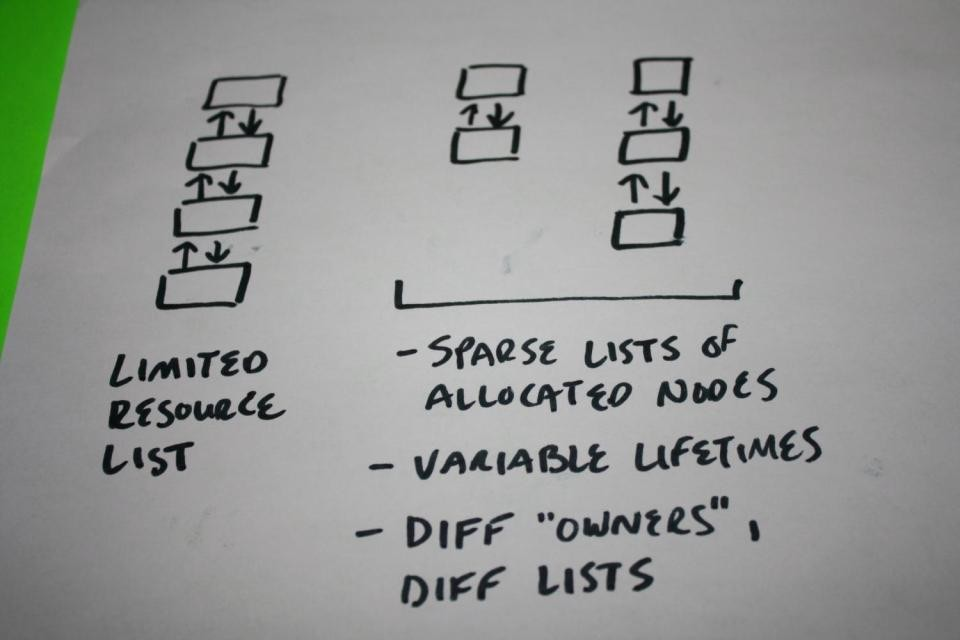 LIMITED
RESOURCE
LIST
- SPARSE LISTS OF
ALLOCATED NODES
- VARIABLE LIFETIMES
- DIFF "OWNERS",
DIFF LISTS